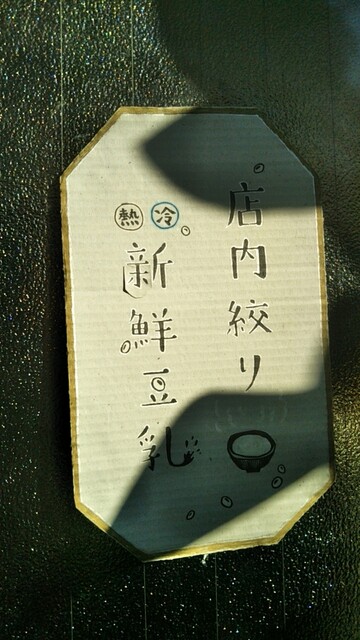 店内絞り
熱 冷
新鮮豆乳